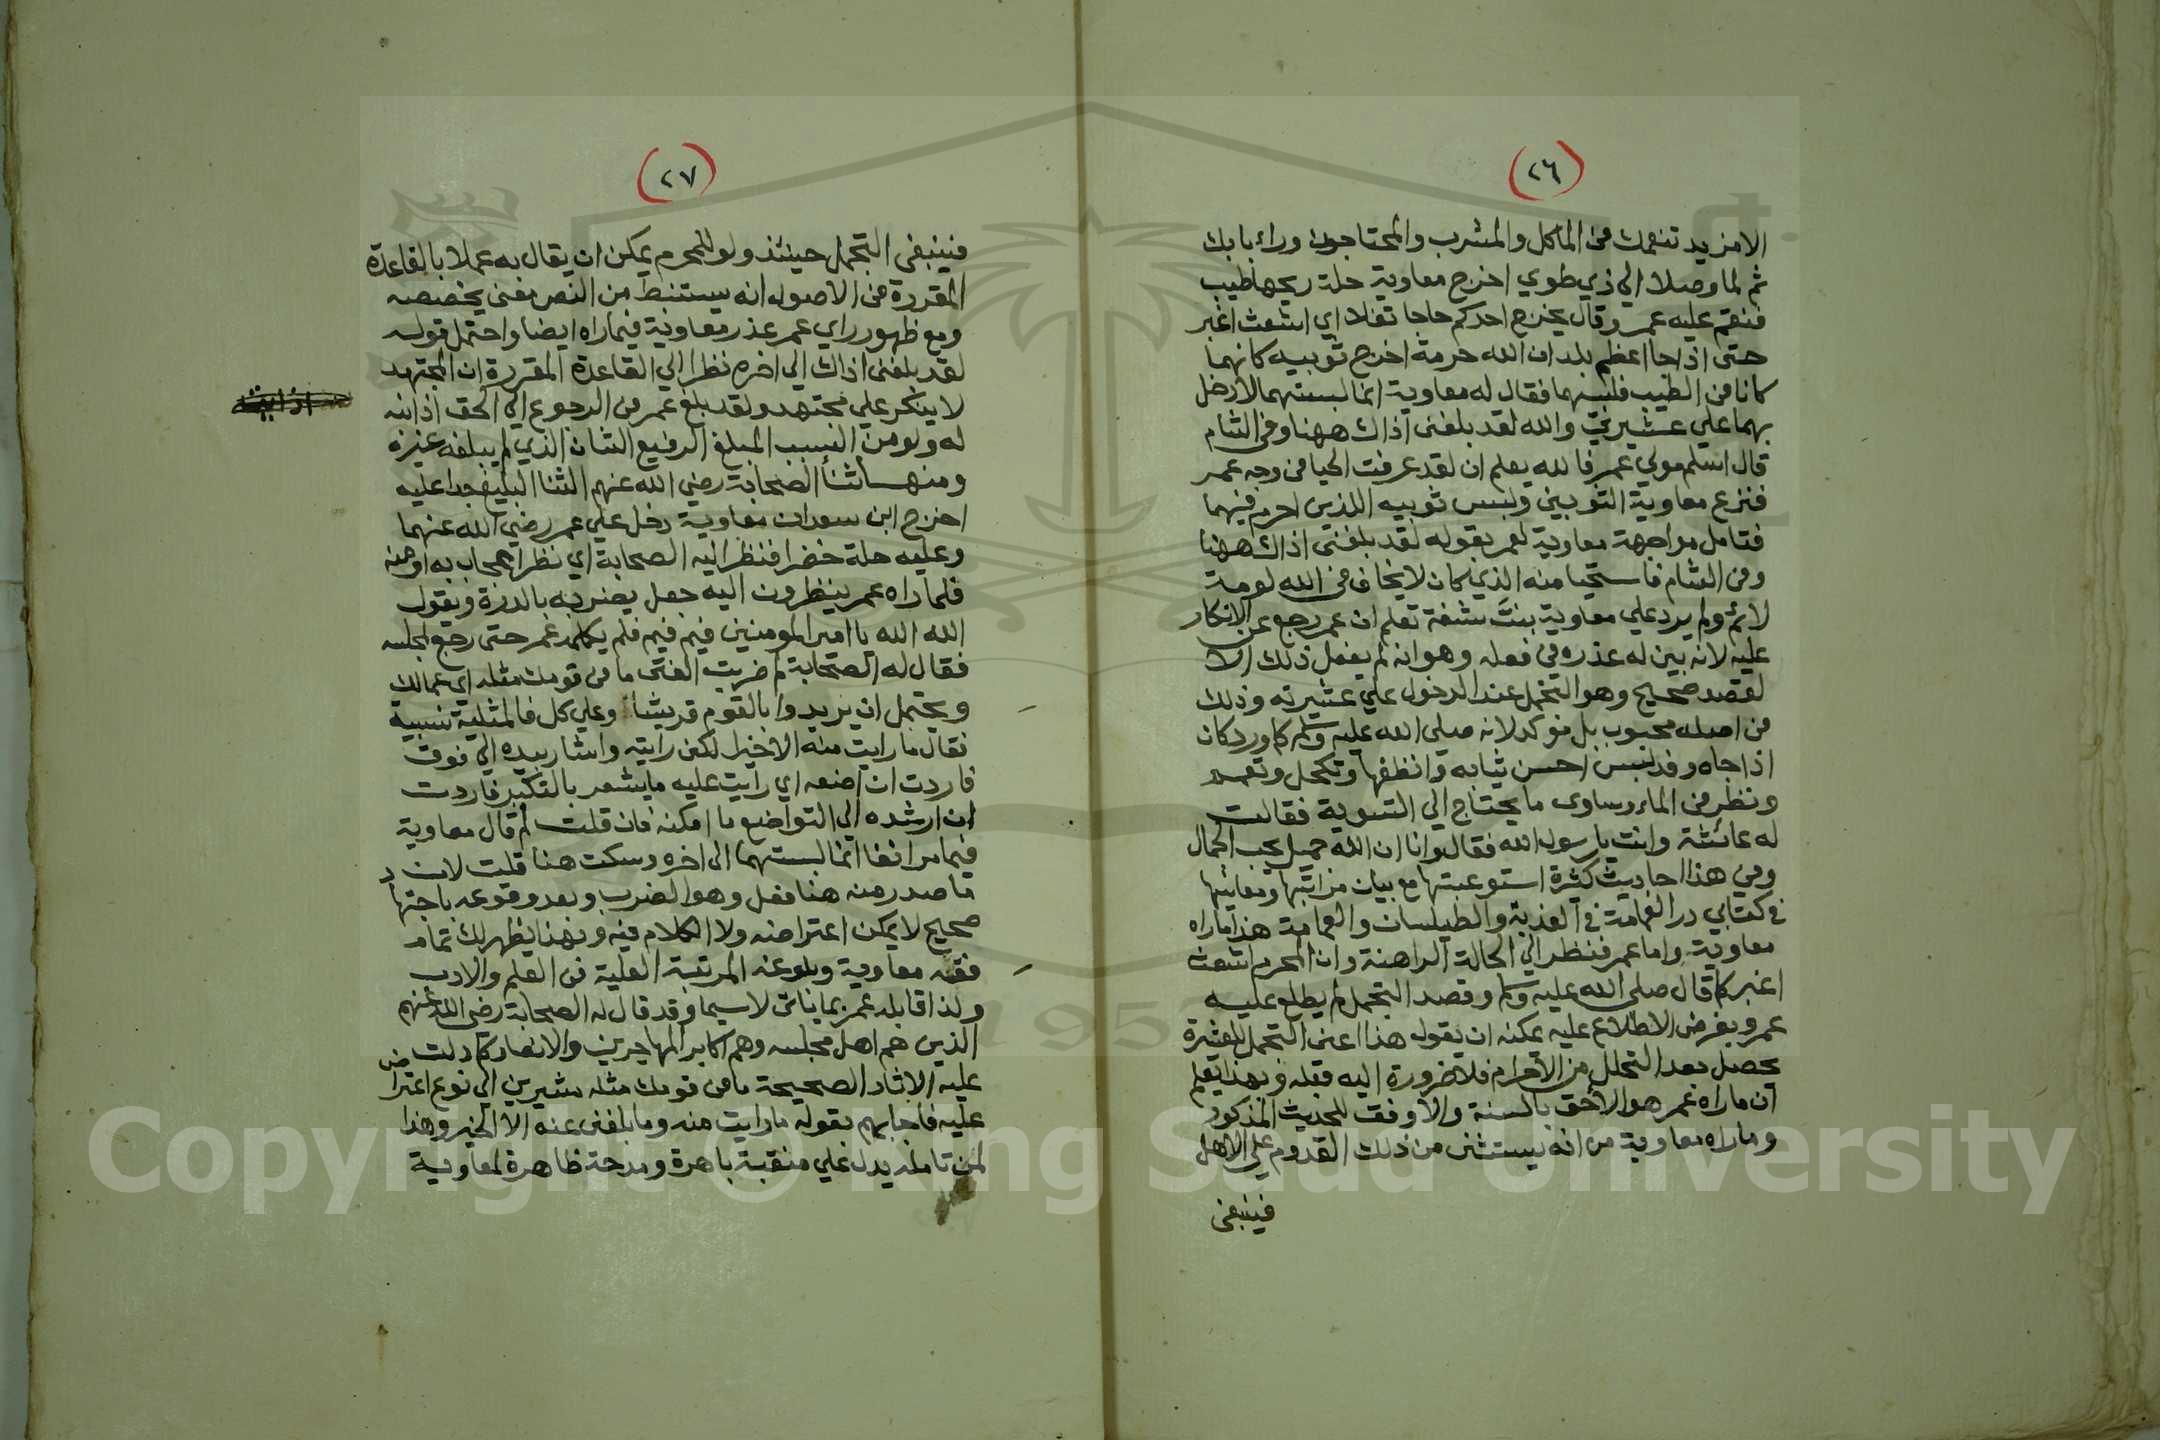 (٢٦)
الا مزيد تنعمك في الماكل والمشرب والمحتاجون وراء بابك
ثم لما وصلا الي ذي طوي اخرج معاوية حلة ريحها طيب
فنقم عليه عمر وقال يخرج احدكم حاجا تفلا اي اشعث اغبر
حتى اذا جا اعظم بلدان الله حرمة اخرج ثوبيه كانهما
كانا في الطيب فلبسهما فقال له معاوية انما لبستهما لادخل
بهما علي عشيرتي والله لقد بلغني اذاك ههنا وفي الشام
قال اسلم مولي عمر فالله يعلم ان لقد عرفت الحيا في وجه عمر
فنزع معاوية الثوبين ولبس ثوبيه اللذين احرم فيهما
فتامل مواجهة معاوية لعمر بقوله لقد بلغني اذاك ههنا
وفي الشام فاستحيا منه الذي كان لا يخاف في الله لومة
لائم ولم يرد علي معاوية بنت شفة تعلم ان عمر رجع عن الانكار
عليه لانه بين له عذره في فعله وهو انه لم يفعل ذلك الا
لقصد صحيح وهو التجمل عند الدخول علي عشيرته وذلك
في اصله محبوب بل موكد لانه صلى الله عليه وسلم كما ورد كان
اذا جاه وفد لبس احسن ثيابه وانظفها وتكحل وتعمم
ونظر في الماء وساوى ما يحتاج الي التسوية فقالت
له عائشة وانت يا رسول الله فقال وانا ان الله جميل يحب الجمال
وفي هذا احاديث كثيرة استوعبتها مع بيان مراتبها ومعانيها
في كتابي در الغمامة في العذبة والطيلسان والعمامة هذا ما راه
معاوية واما عمر فنظر الي الحالة الراهنة وان المحرم اشعث
اغبر كما قال صلى الله عليه وسلم وقصد التجمل لم يطلع عليه
عمر وبفرض الاطلاع عليه يمكنه ان يقول هذا اعني التجمل للعشيرة
يحصل بعد التحلل من الاحرام فلا ضرورة اليه قبله وبهذا يعلم
ان ما راه عمر هو الاحق بالسنة والاوفق للحديث المذكور
وما راه معاوية من انه يستثنى من ذلك القدوم علي الاهل
فينبغي
(٢٧)
فينبغي التجمل حينئذ ولو للمحرم يمكن ان يقال به عملا بالقاعدة
المقررة في الاصول انه يستنبط من النص معنى يخصصه
ومع ظهور راي عمر عذر معاوية فيما راه ايضا واحتمل قوله
لقد بلغني اذاك الي اخره نظرا الي القاعدة المقررة ان المجتهد
لا ينكر علي مجتهد ولقد بلغ عمر في الرجوع الي الحق اذا بينه
له ولو من السبب المبلغ الرفيع الشان الذي لم يبلغه غيره
ومنها ثنا الصحابة رضي الله عنهم الثنا البليغ جدا عليه
اخرج ابن سعد ان معاوية دخل علي عمر رضي الله عنهما
وعليه حلة خضرا فنظر اليه الصحابة اي نظر اعجاب به او منه
فلما راه عمر ينظرون اليه جعل يضربه بالدرة ويقول
الله الله يا امير المومنين فيم فيم فلم يكلمه عمر حتى رجع لمجلسه
فقال له الصحابة لم ضربت الفتى ما في قومك مثله اي عمالك
ويحتمل ان يريدوا بالقوم قريشا وعلي كل فالمثلية نسبية
فقال ما رايت منه الا خيرا لكن رايته واشار بيده الي فوق
فاردت ان اضعه اي رايت عليه ما يشعر بالتكبر فاردت
ان ارشده الي التواضع ما امكنه فان قلت لم قال معاوية
فيما مر انفا انما لبستهما الى اخره وسكت هنا قلت لان
ما صدر منه هنا فعل وهو الضرب وبعد وقوعه باجتهاد
صحيح لا يمكن اعتراضه ولا الكلام فيه وبهذا يظهر لك تمام
فقه معاوية وبلوغه المرتبة العلية في العلم والادب
ولذا قابله عمر بما ياتي لا سيما وقد قال له الصحابة رضي الله عنهم
الذين هم اهل مجلسه وهم اكابر المهاجرين والانصار كما دلت
عليه الاثار الصحيحة ما في قومك مثله مشيرين الي نوع اعتراض
عليه فاجابهم بقوله ما رايت منه وما بلغني عنه الا الخير وهذا
لمن تامله يدل علي منقبة باهرة ومدحة ظاهرة لمعاوية
Copyright © King Saud University
1957